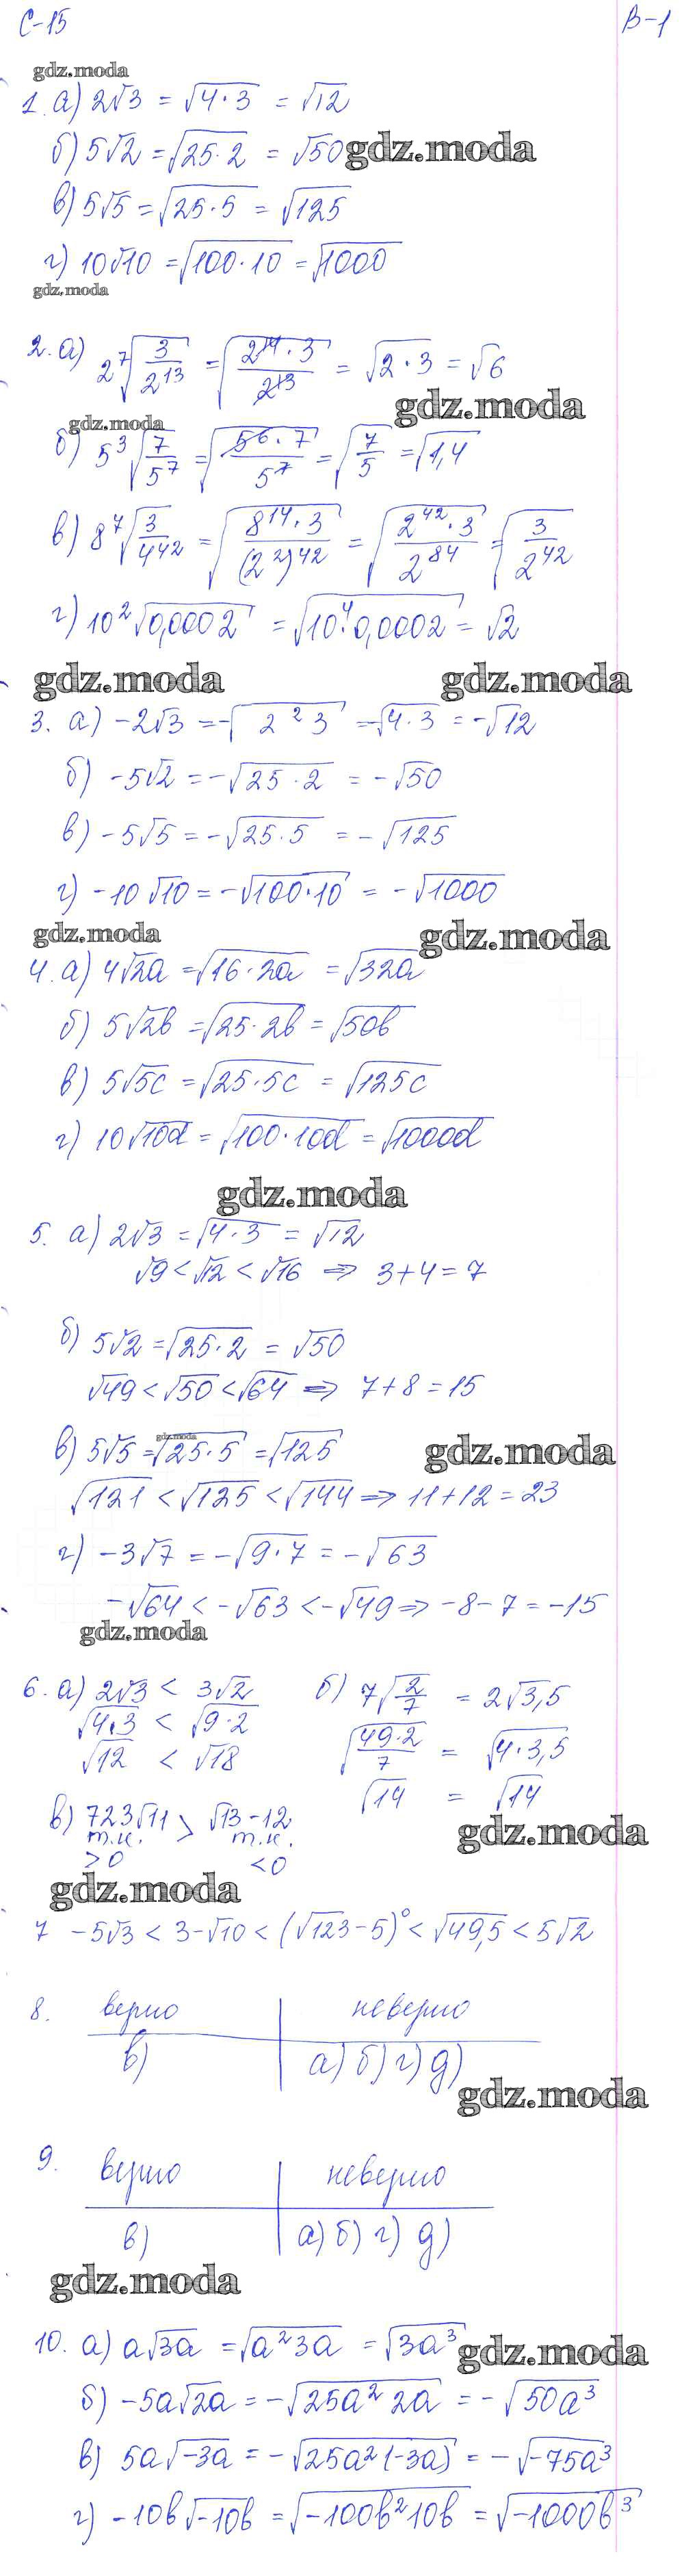 С-15 В-1
gdz.moda
1. а) 2√3 = √4·3 = √12
б) 5√2 = √25·2 = √50 gdz.moda
в) 5√5 = √25·5 = √125
г) 10√10 = √100·10 = √1000
gdz.moda
2. а) 2⁷√(3/2¹³) = √(2¹⁴·3/2¹³) = √2·3 = √6
gdz.moda
gdz.moda
б) 5³√(7/5⁷) = √(5⁶·7/5⁷) = √(7/5) = √1,4
в) 8⁷√(3/4⁴²) = √(8¹⁴·3/(2²)⁴²) = √(2⁴²·3/2⁸⁴) = √(3/2⁴²)
г) 10²√0,0002 = √10⁴·0,0002 = √2
gdz.moda gdz.moda
3. а) -2√3 = -√2²3 = -√4·3 = -√12
б) -5√2 = -√25·2 = -√50
в) -5√5 = -√25·5 = -√125
г) -10√10 = -√100·10 = -√1000
gdz.moda gdz.moda
4. а) 4√2a = √16·2a = √32a
б) 5√2b = √25·2b = √50b
в) 5√5c = √25·5c = √125c
г) 10√10d = √100·10d = √1000d
gdz.moda
5. а) 2√3 = √4·3 = √12
√9 < √12 < √16 ⇒ 3+4=7
б) 5√2 = √25·2 = √50
√49 < √50 < √64 ⇒ 7+8=15
gdz.moda
в) 5√5 = √25·5 = √125 gdz.moda
√121 < √125 < √144 ⇒ 11+12=23
г) -3√7 = -√9·7 = -√63
-√64 < -√63 < -√49 ⇒ -8-7=-15
gdz.moda
6. а) 2√3 < 3√2 б) 7√(2/7) = 2√3,5
√4·3 < √9·2 √(49·2/7) = √4·3,5
√12 < √18 √14 = √14
в) 723√11 > √13-12
т.к. т.к.
>0 <0
gdz.moda
gdz.moda
7 -5√3 < 3-√10 < (√123-5)⁰ < √49,5 < 5√2
8. верно | неверно
в) | а) б) г) д)
gdz.moda
9. верно | неверно
в) | а) б) г) д)
gdz.moda
10. а) a√3a = √a²3a = √3a³ gdz.moda
б) -5a√2a = -√25a²2a = -√50a³
в) 5a√-3a = -√25a²(-3a) = -√-75a³
г) -10b√-10b = √-100b²10b = √-1000b³